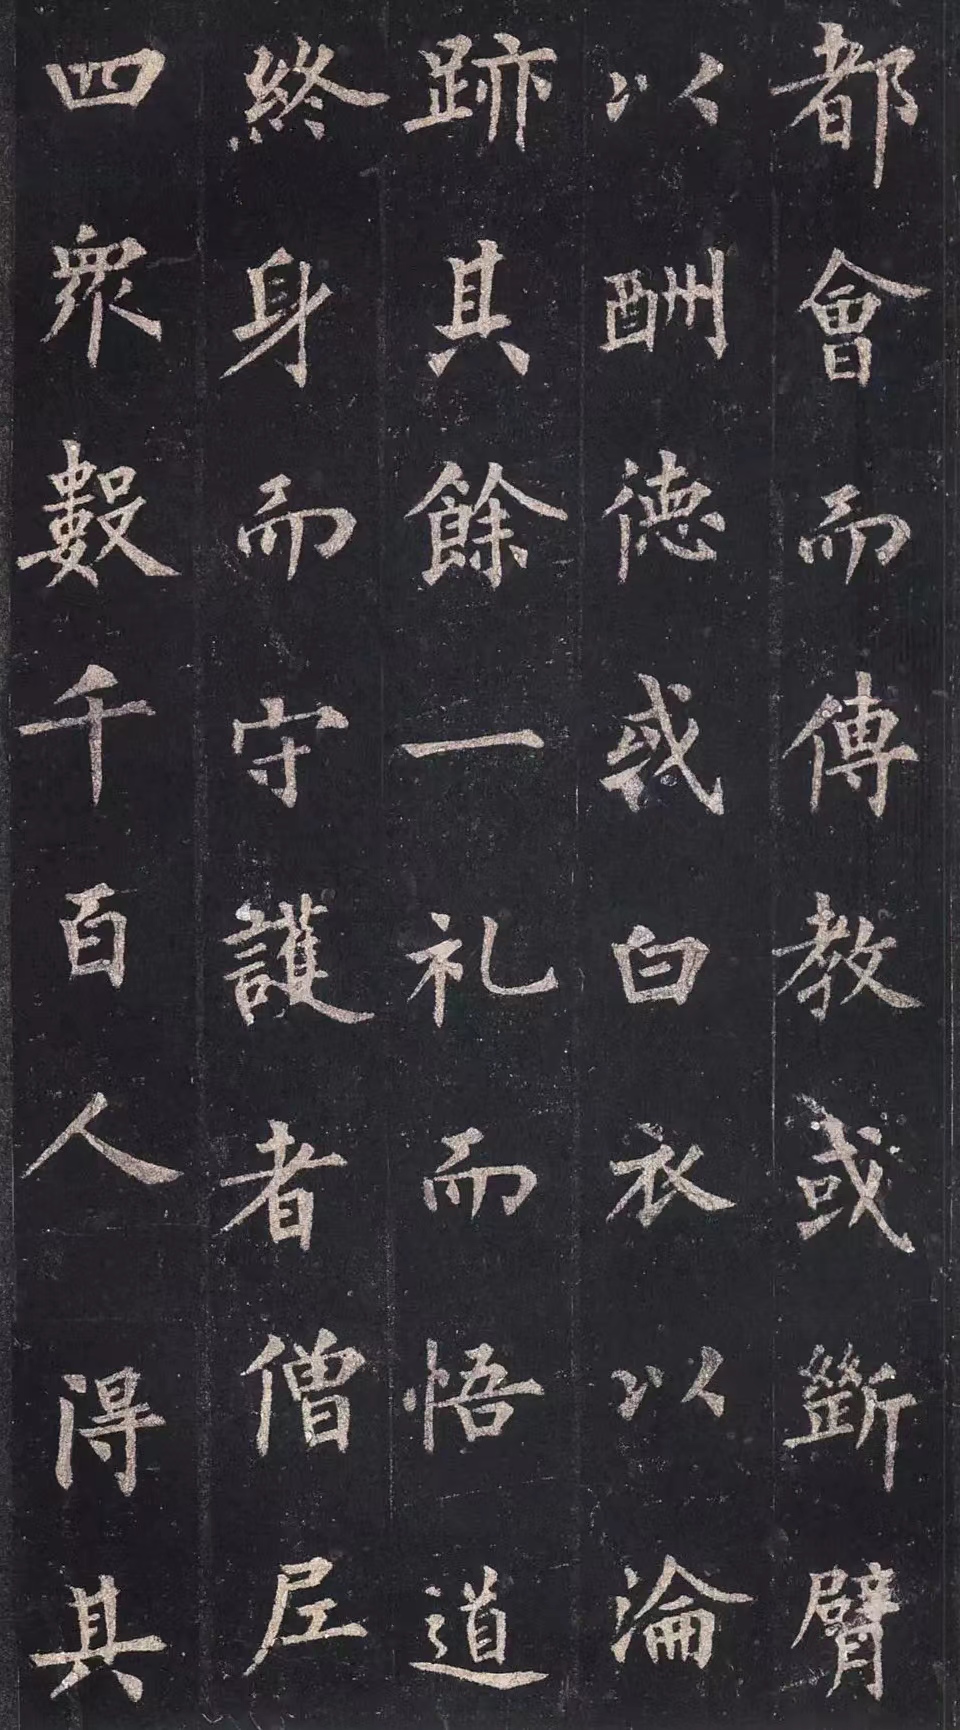 都會而傳教或斷臂
以酬德或白衣以淪
跡其餘一礼而悟道
終身而守護者僧尼
四衆數千百人得其